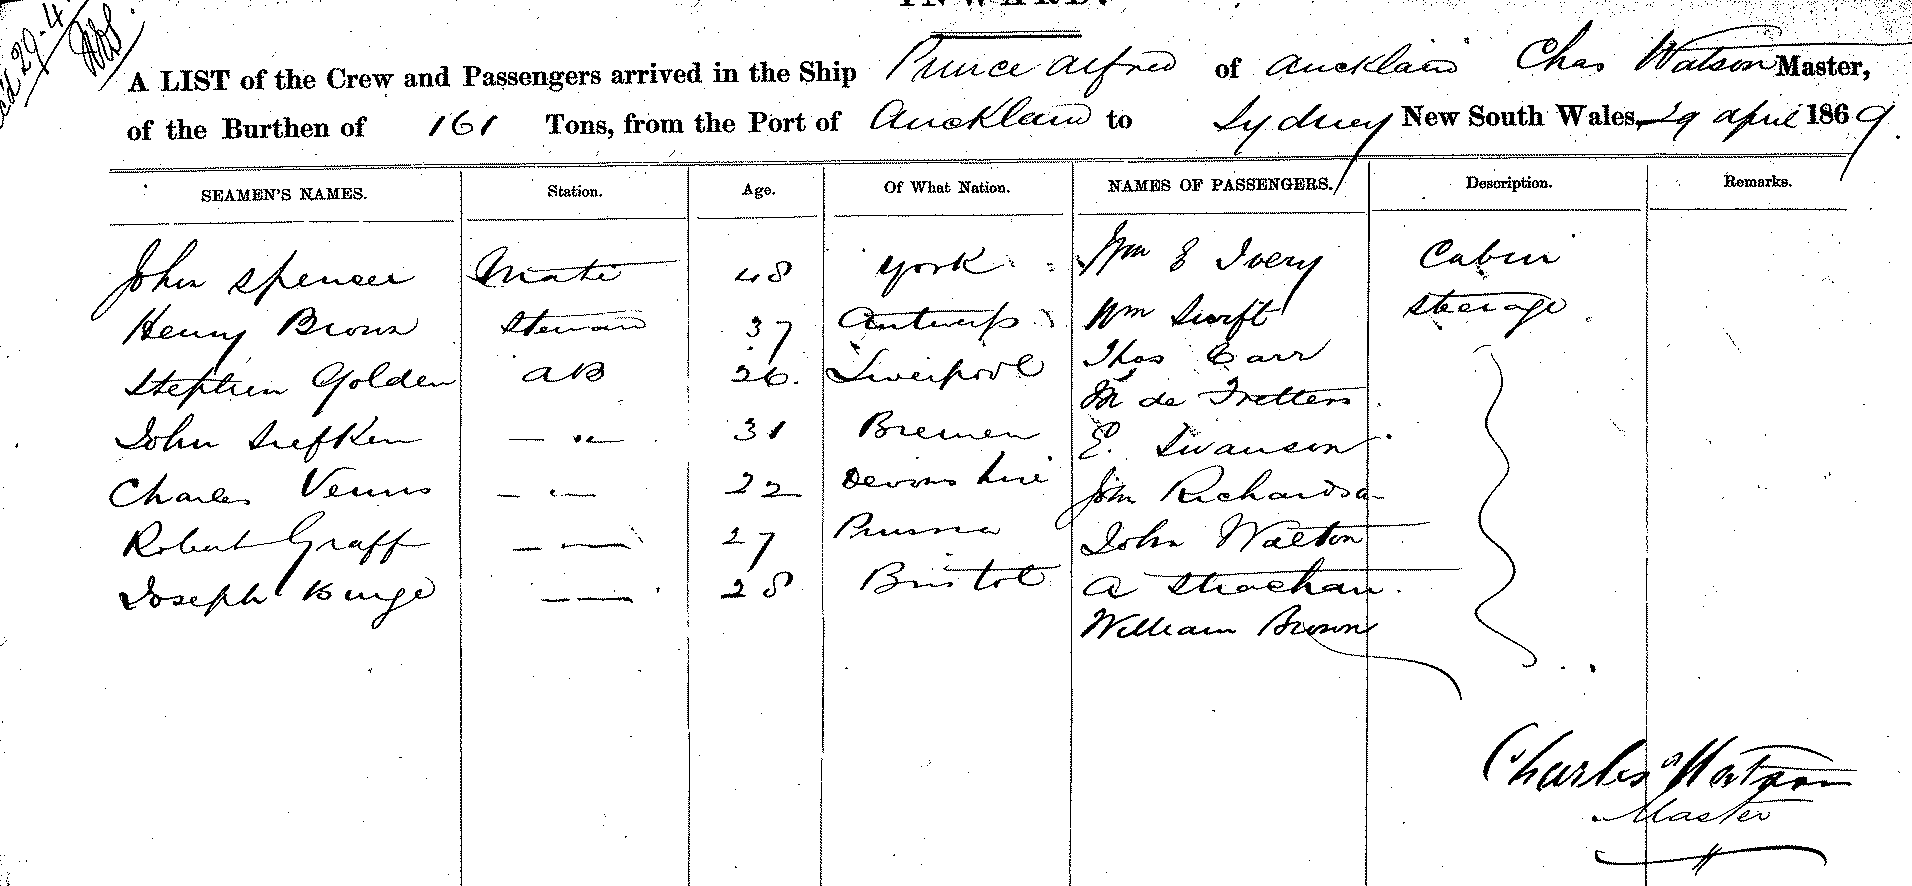 INWARD.
29-4
A LIST of the Crew and Passengers arrived in the Ship Prince Alfred of Auckland Chas Watson Master,
of the Burthen of 161 Tons, from the Port of Auckland to Sydney New South Wales, 29 April 1869.
SEAMEN'S NAMES. Station. Age. Of What Nation. NAMES OF PASSENGERS. Description. Remarks.
John Spencer Mate 48 York Wm E Ivery Cabin
Henry Brown Steward 37 Antwerp Wm Swift Steerage
Stephen Golden AB 26. Liverpool Thos Carr
de
John Siefken — " — 31 Bremen E. Swanson
Charles Venus — " — 22 Devonshire John Richardson
Robert Graff — — 27 Prussia John Walton
Joseph Burge — — 28 Bristol A Strachan.
William Brown
Charles Watson
Master